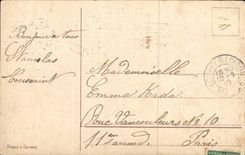 Bonjour à tous
Stanislas
Toussaint
Mademoiselle
Emma Kada
Rue Vaucouleurs No 10
11em
Paris
Printed in Germany